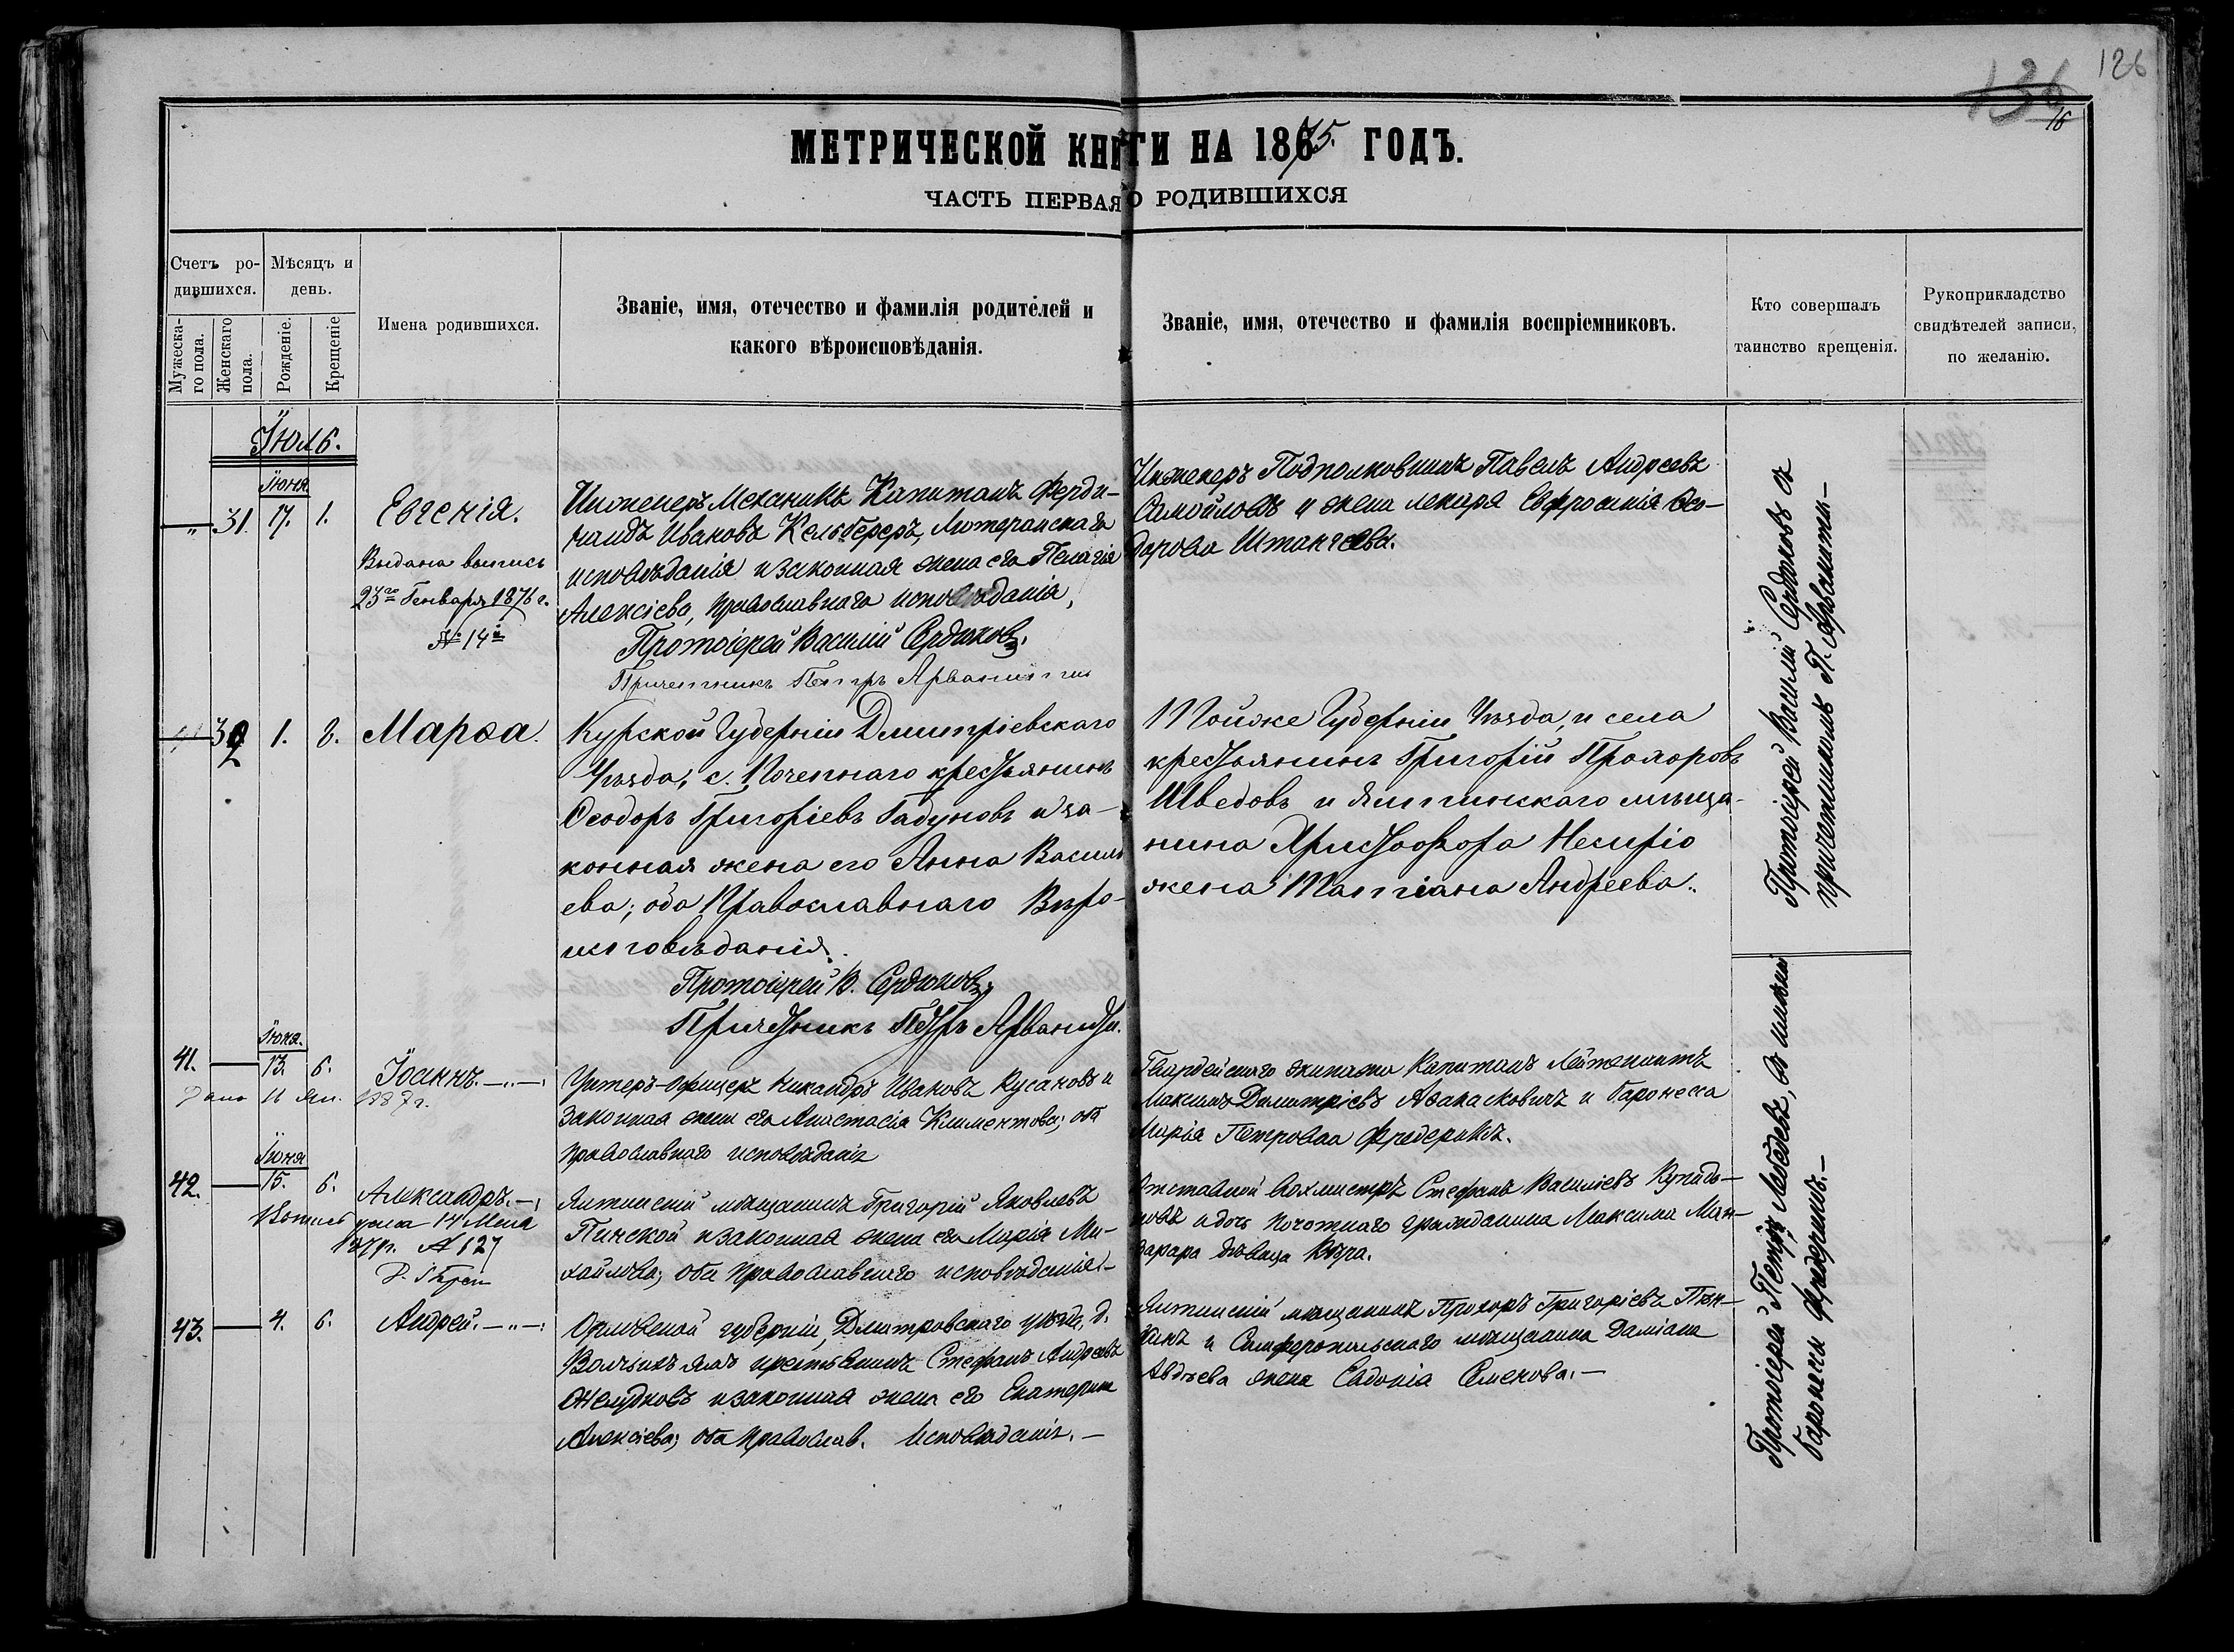 126
136
16
МЕТРИЧЕСКОЙ КНИГИ НА 1875. ГОДЪ.
ЧАСТЬ ПЕРВАЯ О РОДИВШИХСЯ
Счетъ ро-
дившихся.
Мужеска-
го пола.
Женскаго
пола.
Мѣсяцъ и
день.
Рожденіе.
Крещеніе
Имена родившихся.
Званіе, имя, отечество и фамилія родителей и
какого вѣроисповѣданія.
Званіе, имя, отечество и фамилія воспріемниковъ.
Кто совершалъ
таинство крещенія.
Рукоприкладство
свидѣтелей записи,
по желанію.
Іюль.
Іюня
" 31. 17. 1. Евгенія.
Выдана выпись
23го Генваря 1876 г.
№ 14й
Инженеръ Механикъ Капитанъ Ферди-
нандъ Ивановъ Кельбереръ, Лютеранскаго
исповѣданія и законная жена его Пелагія
Алексіева, православнаго исповѣданія,
Протоіерей Василій Сердюковъ.
Причетникъ Петръ Арванити
Инженеръ Подполковникъ Павелъ Андреевъ
Самойловъ и жена лекаря Евфросинія Ѳео-
дорова Штакгева.
32 1. 2. Марѳа.
Курской Губерніи Дмитріевскаго
Уѣзда, с. Поченнаго крестьянинъ
Ѳеодоръ Григоріевъ Гадуновъ и за-
конная жена его Анна Василь
ева; оба Православнаго Вѣро-
исповѣданія.
Протоіерей В. Сердюковъ
Причетникъ Петръ Арванити.
Тойже Губерніи Уѣзда, и села
крестьянинъ Григорій Прохоровъ
Шведовъ и Ялтинскаго мѣща-
нина Христофора Несиріо
жена Татіана Андреева.
Протоіерей Василій Сердюковъ съ
причетникомъ П. Арванити.—
Іюня.
41. — 13. 6. Іоаннъ. —"—
Дано 11 Ян. 1887 г.
Унтеръ-Офицеръ Никандръ Ивановъ Кусаковъ и
законная жена его Анастасія Климентова; оба
православнаго исповѣданія
Гвардейскаго экипажа Капитанъ Лейтенантъ
Максимъ Димитріевъ Аѳанасковичъ и баронесса
Марія Петровна Фредериксъ.
Іюня
42. — 15. 6. Александръ. —
Выпись 14 Мая
№ 127
Ялтинскій мѣщанинъ Григорій Яковлевъ
Пинской и законная жена его Марія Ми-
хайлова; оба православнаго исповѣданія.—
Отставной Вахмистръ Стефанъ Василіевъ
новъ и дочь почотнаго гражданина Максима Ман-
дарара дѣвица Вѣра.
43. — 4. 6. Андрей. —"—
Орловской губерніи, Дмитровскаго уѣзда, д.
Волчьихъ ямъ крестьянинъ Стефанъ Андреевъ
Желудковъ и законная жена его Екатерина
Алексіева; оба православ. исповѣданія. —
Ялтинскій мѣщанинъ Прохоръ Григоріевъ
и Симферопольскаго мѣщанина Даміана
Авдѣева жена Евдокія Семенова. —
Протоіерей Петръ Лебедевъ,
баронессы Фредериксъ.—